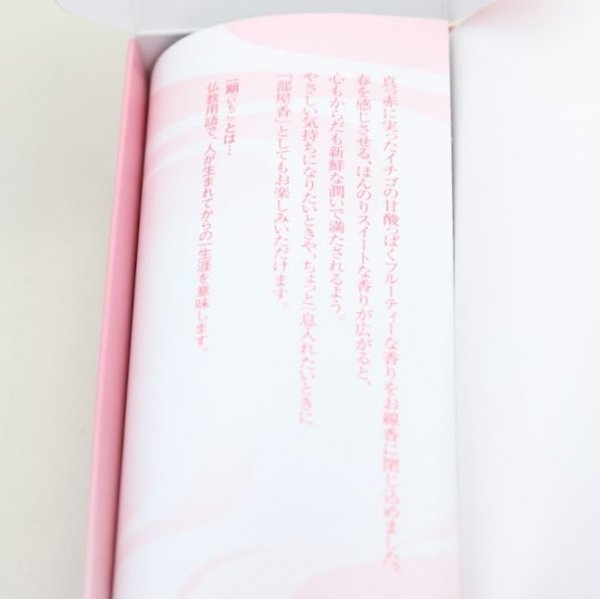 真っ赤に実ったイチゴの甘酸っぱくフルーティーな香りをお線香に閉じ込めました。
春を感じさせる、ほんのりスイートな香りが広がると、
心もからだも新鮮な潤いで満たされるよう。
やさしい気持ちになりたいときや、ちょっと一息入れたいときに
「部屋香」としてもお楽しみいただけます。
一期(いちご)とは…
仏教用語で、人が生まれてからの一生涯を意味します。